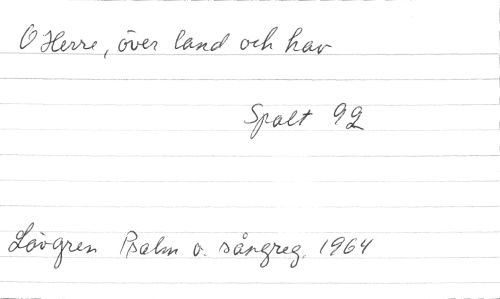 O Herre, över land och hav
Spalt 92
Lövgren Psalm o. sångreg. 1964